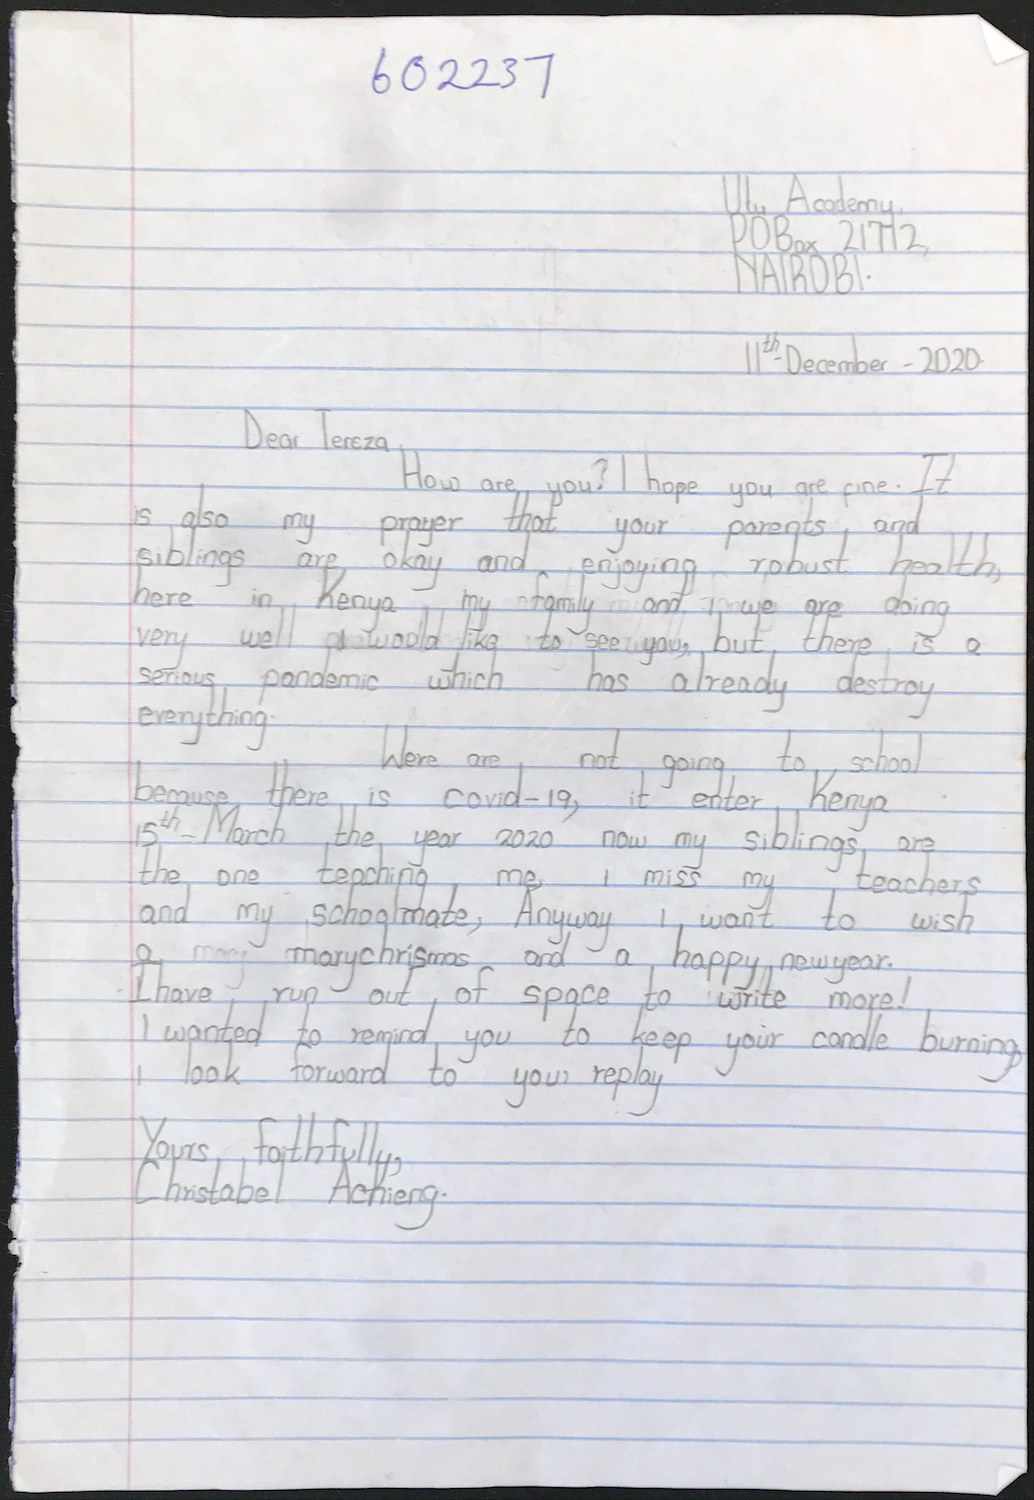 602237
Academy,
POBox 21712,
NAIROBI.
11th-December - 2020.
Dear Tereza,
How are you? I hope you are fine. It
is also my prayer that your parents, and
siblings are okay and enjoying robust health,
here in Kenya my family and we are doing
very well would like to see you, but there is a
serious pandemic which has already destroy
everything.
Were are not going to school
because there is covid-19, it enter Kenya
15th-March the year 2020 now my siblings are
the one teaching me, I miss my teachers
and my schoolmate, Anyway I want to wish
a marychrismas and a happy newyear.
I have run out of space to write more!
I wanted to remind you to keep your candle burning,
I look forward to your replay
Yours faithfully,
Christabel Achieng.